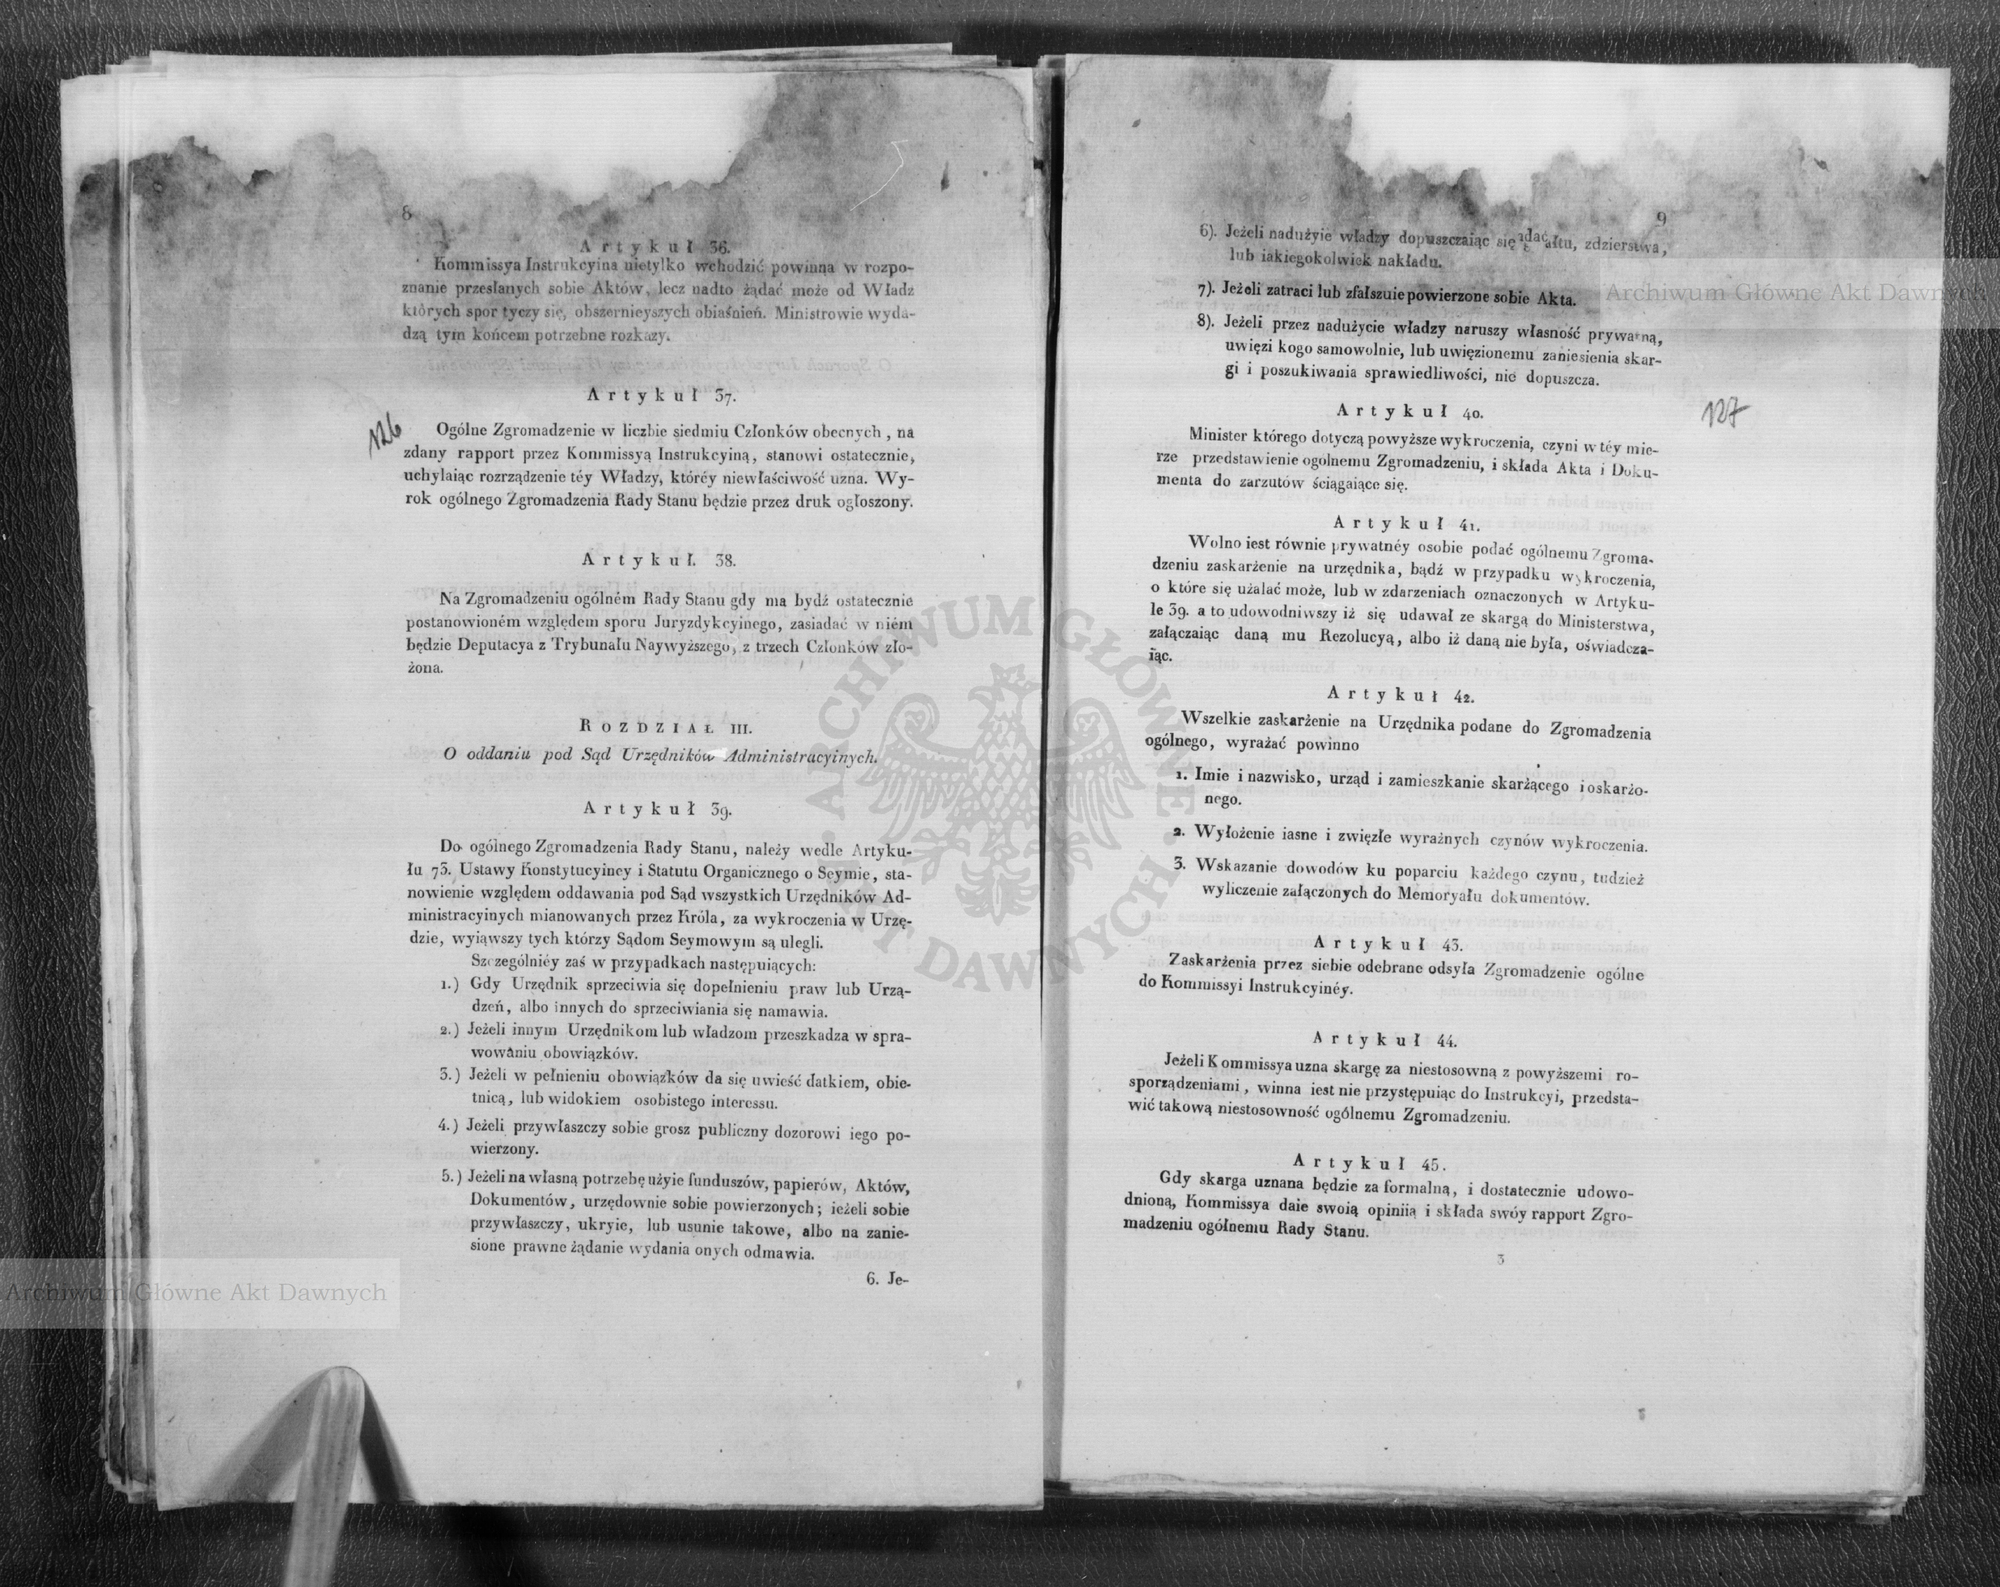 8
Artykuł 36.
Kommissya Instrukcyina nietylko wchodzić powinna w rozpo-
znanie przesłanych sobie Aktów, lecz nadto żądać może od Władz
których spor tyczy się, obszernieyszych obiaśnień. Ministrowie wyda-
dzą tym końcem potrzebne rozkazy.
Artykuł 37.
126
Ogólne Zgromadzenie w liczbie siedmiu Członków obecnych, na
zdany rapport przez Kommissyą Instrukcyiną, stanowi ostatecznie,
uchylaiąc rozrządzenie téy Władzy, któréy niewłaściwość uzna. Wy-
rok ogólnego Zgromadzenia Rady Stanu będzie przez druk ogłoszony.
Artykuł. 38.
Na Zgromadzeniu ogólném Rady Stanu gdy ma bydź ostatecznie
postanowioném względem sporu Juryzdykcyinego, zasiadać w niém
będzie Deputacya z Trybunału Naywyższego, z trzech Członków zło-
żona.
ROZDZIAŁ III.
O oddaniu pod Sąd Urzędników Administracyinych.
Artykuł 39.
Do ogólnego Zgromadzenia Rady Stanu, należy wedle Artyku-
łu 73. Ustawy Konstytucyiney i Statutu Organicznego o Seymie, sta-
nowienie względem oddawania pod Sąd wszystkich Urzędników Ad-
ministracyinych mianowanych przez Króla, za wykroczenia w Urzę-
dzie, wyiąwszy tych którzy Sądom Seymowym są ulegli.
Szczególniéy zaś w przypadkach następuiących:
1.) Gdy Urzędnik sprzeciwia się dopełnieniu praw lub Urzą-
dzeń, albo innych do sprzeciwiania się namawia.
2.) Jeżeli innym Urzędnikom lub władzom przeszkadza w spra-
wowaniu obowiązków.
3.) Jeżeli w pełnieniu obowiązków da się uwieść datkiem, obie-
tnicą, lub widokiem osobistego interessu.
4.) Jeżeli przywłaszczy sobie grosz publiczny dozorowi iego po-
wierzony.
5.) Jeżeli na własną potrzebę użyie funduszów, papierów, Aktów,
Dokumentów, urzędownie sobie powierzonych; ieżeli sobie
przywłaszczy, ukryie, lub usunie takowe, albo na zanie-
sione prawne żądanie wydania onych odmawia.
6. Je-
9
6). Jeżeli nadużyie władzy dopuszczaiąc się gwałtu, zdzierstwa,
lub iakiegokolwiek nakładu.
7). Jeżeli zatraci lub zfałszuie powierzone sobie Akta.
8). Jeżeli przez nadużycie władzy naruszy własność prywatną,
uwięzi kogo samowolnie, lub uwięzionemu zaniesienia skar-
gi i poszukiwania sprawiedliwości, nie dopuszcza.
Artykuł 40.
127
Minister którego dotyczą powyższe wykroczenia, czyni w téy mie-
rze przedstawienie ogolnemu Zgromadzeniu, i składa Akta i Doku-
menta do zarzutów ściągaiące się.
Artykuł 41.
Wolno iest równie prywatnéy osobie podać ogólnemu Zgroma-
dzeniu zaskarżenie na urzędnika, bądź w przypadku wykroczenia,
o które się użalać może, lub w zdarzeniach oznaczonych w Artyku-
le 39. a to udowodniwszy iż się udawał ze skargą do Ministerstwa,
załączaiąc daną mu Rezolucyą, albo iż daną nie była, oświadcza-
iąc.
Artykuł 42.
Wszelkie zaskarżenie na Urzędnika podane do Zgromadzenia
ogólnego, wyrażać powinno
1. Imie i nazwisko, urząd i zamieszkanie skarżącego i oskarżo-
nego.
2. Wyłożenie iasne i zwięzłe wyraźnych czynów wykroczenia.
3. Wskazanie dowodów ku poparciu każdego czynu, tudzież
wyliczenie załączonych do Memoryału dokumentów.
Artykuł 43.
Zaskarżenia przez siebie odebrane odsyła Zgromadzenie ogólne
do Kommissyi Instrukcyinéy.
Artykuł 44.
Jeżeli Kommissya uzna skargę za niestosowną z powyższemi ro-
sporządzeniami, winna iest nie przystępuiąc do Instrukcyi, przedsta-
wić takową niestosowność ogólnemu Zgromadzeniu.
Artykuł 45.
Gdy skarga uznana będzie za formalną, i dostatecznie udowo-
dnioną, Kommissya daie swoią opiniią i składa swóy rapport Zgro-
madzeniu ogólnemu Rady Stanu.
3
Archiwum Główne Akt Dawnych
Archiwum Główne Akt Dawnych
ARCHIWUM GŁÓWNE AKT DAWNYCH